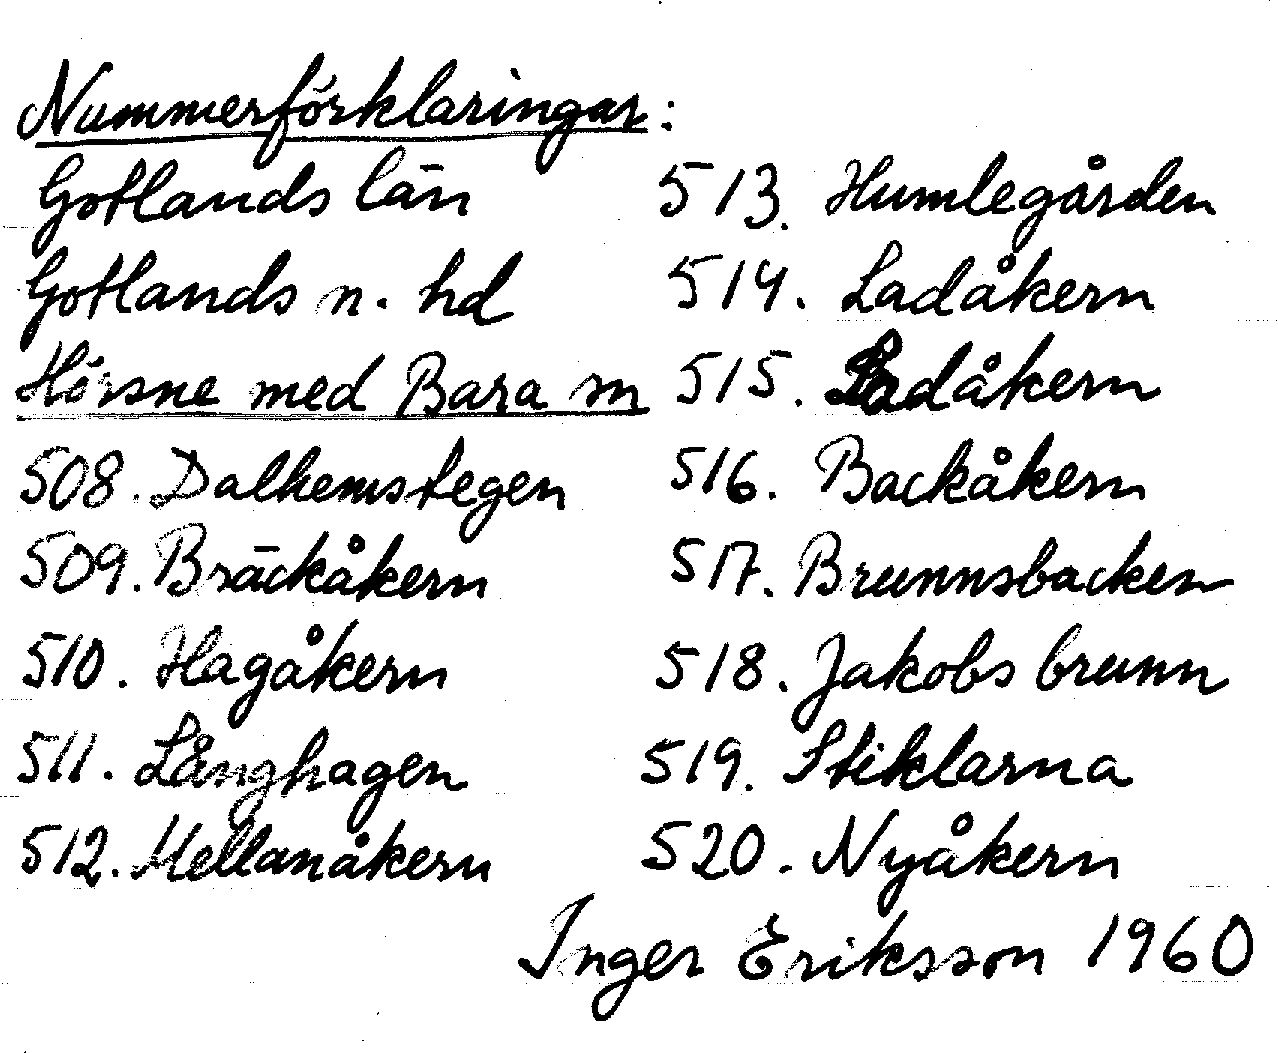 Nummerförklaringar:
Gotlands län
Gotlands n. hd
Hörsne med Bara sn
508. Dalhemstegen
509. Bräckåkern
510. Hagåkern
511. Långhagen
512. Mellanåkern
513. Humlegården
514. Ladåkern
515. Ladåkern
516. Backåkern
517. Brunnsbacken
518. Jakobs brunn
519. Stiklarna
520. Nyåkern
Inger Eriksson 1960